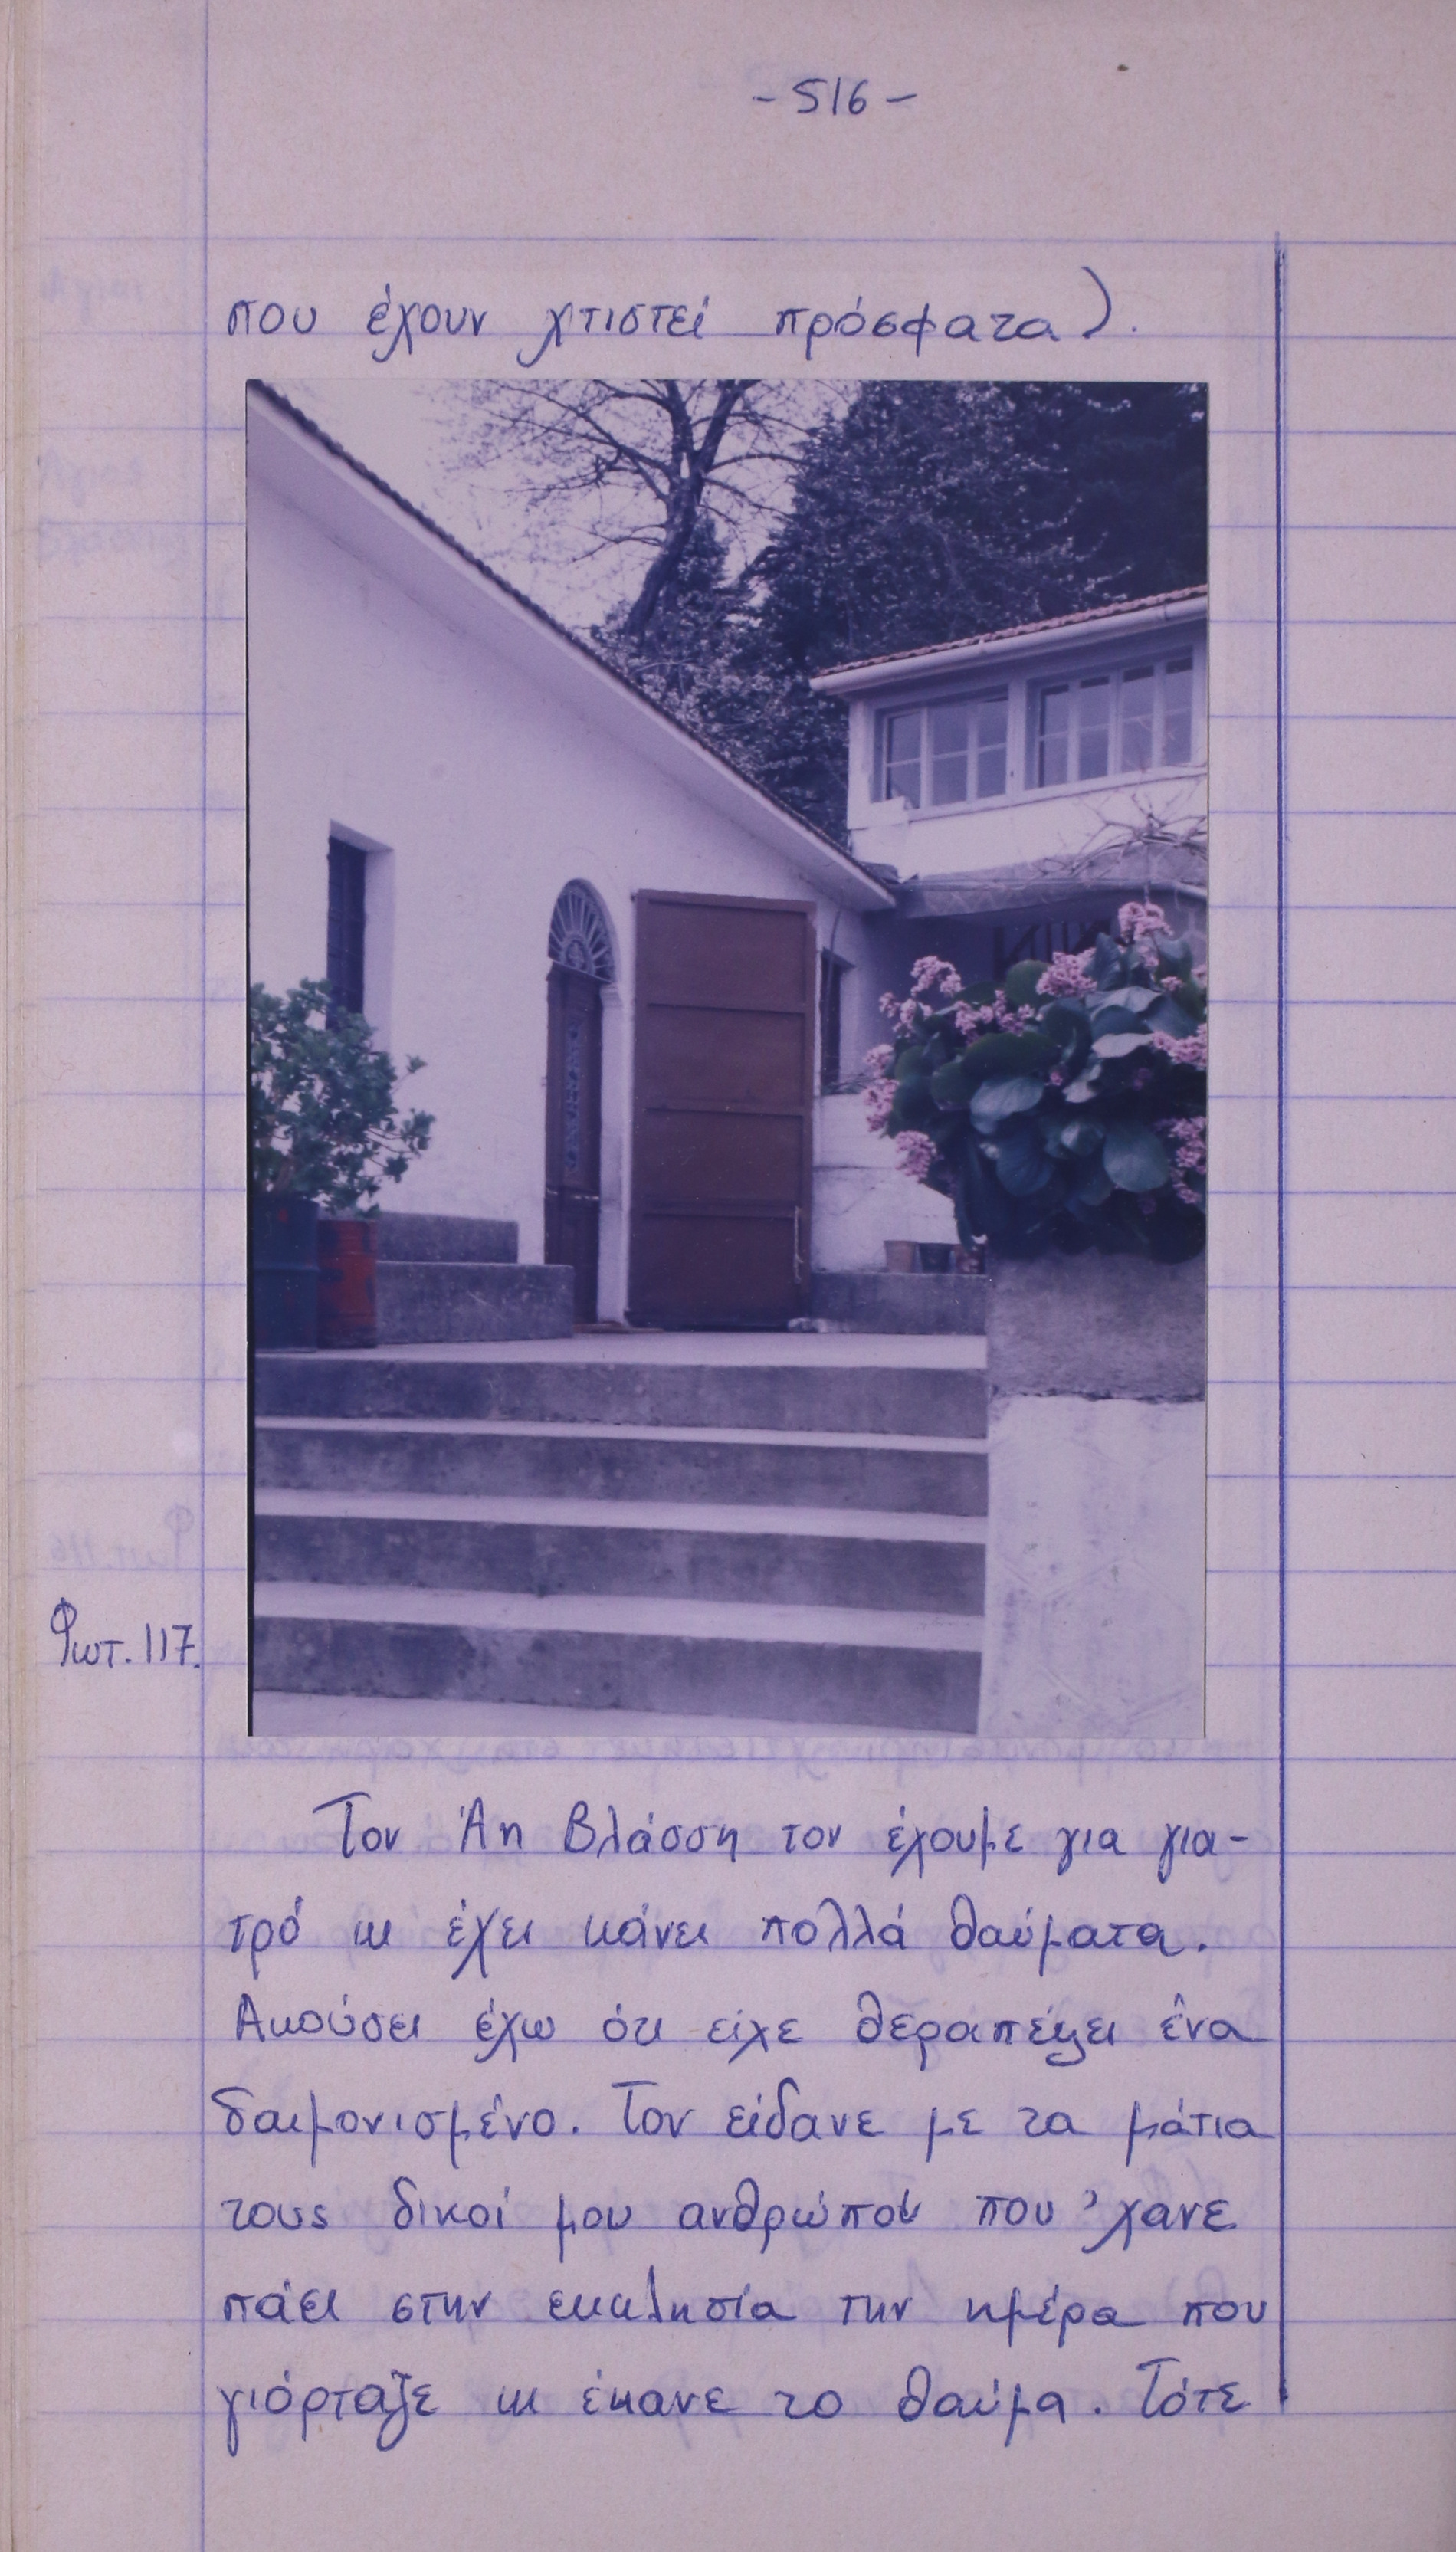 - 516 -
που έχουν χτιστεί πρόσφατα).
Φωτ. 117.
Τον Άη Βλάσση τον έχουμε για για-
τρό κι έχει κάνει πολλά θαύματα.
Ακούσει έχω ότι είχε θεραπέψει ένα
δαιμονισμένο. Τον είδανε με τα μάτια
τους δικοί μου ανθρώποι που 'χανε
πάει στην εκκλησία την ημέρα που
γιόρταζε κι έκανε το θαύμα. Τότε